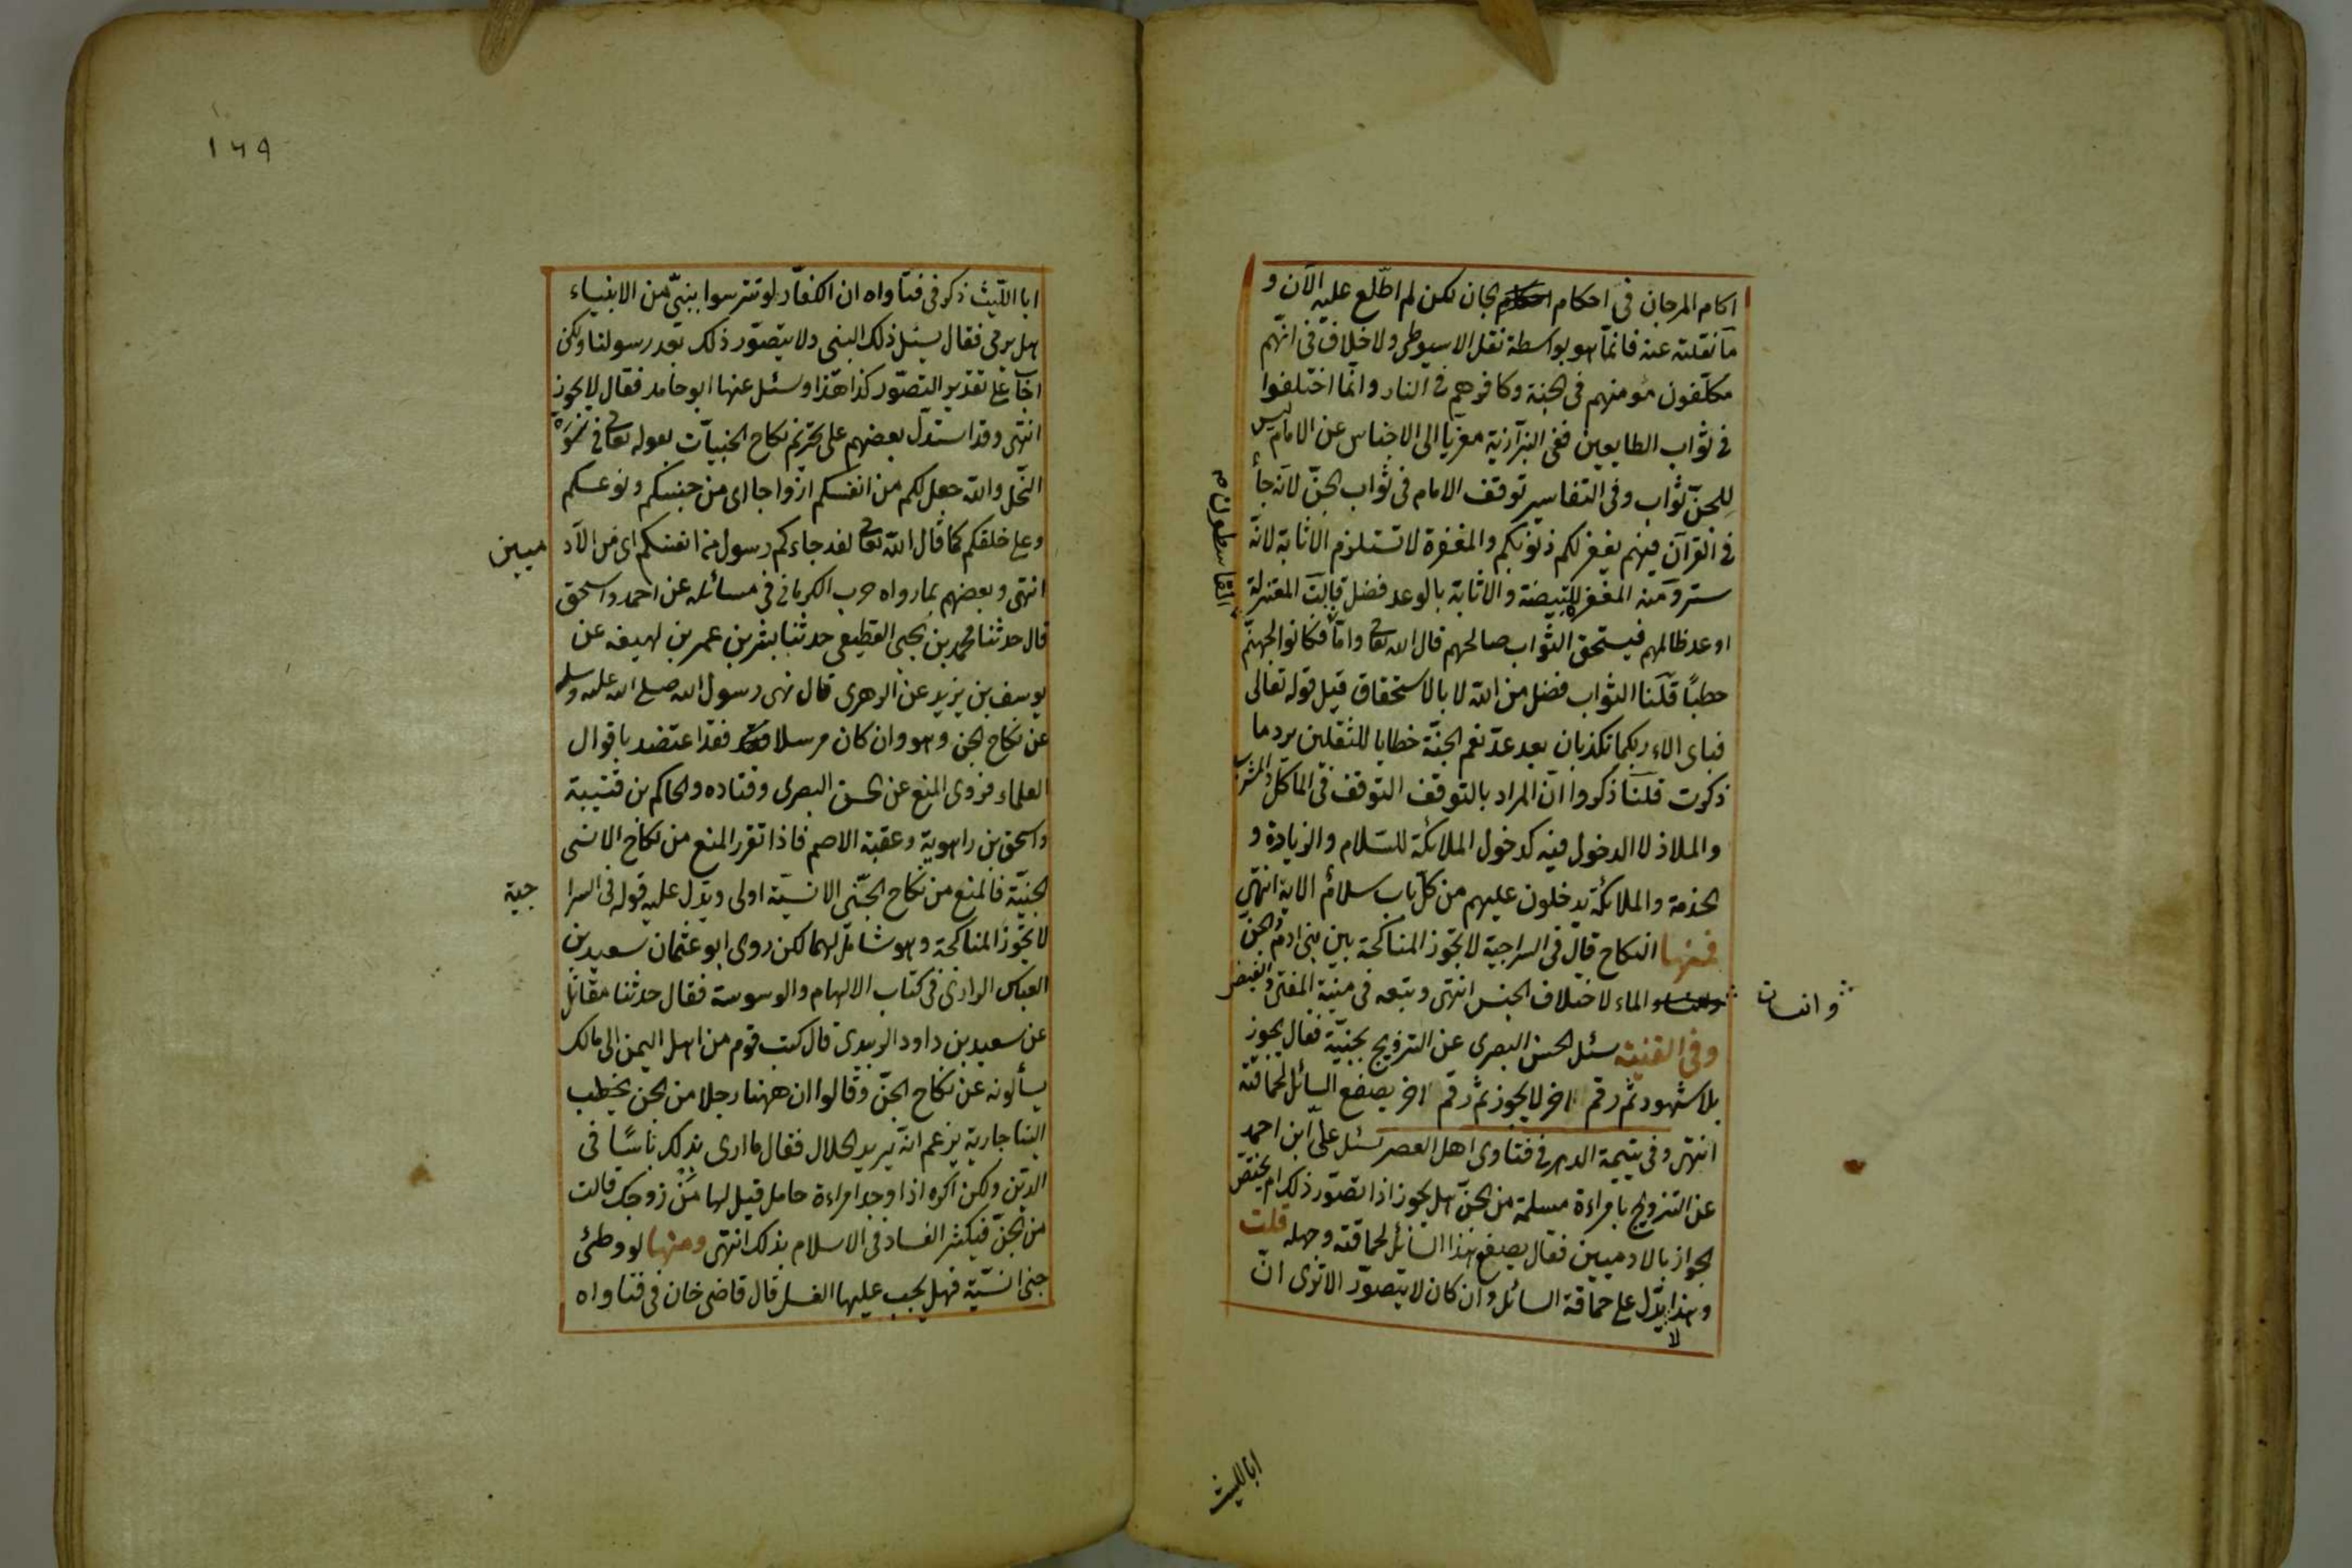 اكام المرجان فى احكام الجان لكن لم اطّلع عليه الآن و
ما نقلته عنه فانّما هو بواسطة نقل الاسيوطى ولا خلاف فى انّهم
مكلّفون مؤمنهم فى الجنة وكافرهم فى النار وانّما اختلفوا
فى ثواب الطايعين ففى البزّازية معزيا الى الاجناس عن الامام ليس
للجنّ ثواب وفى التفاسير توقف الامام فى ثواب الجنّ لانّه جأ
فى القرآن فيهم يغفر لكم ذنوبكم والمغفرة لا تستلزم الاثابة لانّه
ستر ومنه المغفر للبيضة والاثابة بالوعد فضل قالت المعتزلة
اوعد ظالمهم فيستحق الثواب صالحهم قال الله تعالى وامّا القاسطون فكانوا لجهنّم
حطبًا قلنا الثواب فضل من الله لا بالاستحقاق قيل قوله تعالى
فباى الاء ربكما تكذبان بعد عدّ نعم الجنّة خطابا للثقلين يرد ما
ذكرت قلنا ذكروا انّ المراد بالتوقف التوقف فى المآكل والمشرب
والملاذ لا الدخول فيه كدخول الملائكة للسّلام والزيادة و
الخدمة والملائكة يدخلون عليهم من كلّ باب سلامٌ الاية انتهى
فمنها النكاح قال فى السراجية لا تجوز المناكحة بين بنى ادم والجنّ
وانسان الماء لاختلاف الجنس انتهى وتبعه فى منية المفتى والفيض
وفى القنية سئل الحسن البصرى عن التزويج بجنيّة فقال يجوز
بلا شهود ثم رقم اخر لا يجوز ثم رقم اخر يصفع السائل لحماقته
انتهى وفى يتيمة الدهر فى فتاوى اهل العصر سئل علىّ ابن احمد
عن التزويج بامراءة مسلمة من الجنّ هل يجوز اذا تصوّر ذلك ام يختصّ
الجواز بالادميين فقال يصفع هذا السائل لحماقته وجهله قلت
وهذا لا يدّل على حماقة السائل وان كان لا يتصوّر الا ترى انّ
ابا الليث
١٦٩
ابا اللّيث ذكر فى فتاواه ان الكفّار لو تترسوا بنبىّ من الانبياء
هل يرمى فقال يسئل ذلك النبى ولا يتصوّر ذلك بعد رسولنا ولكن
اجاب على تقدير التصوّر كذا هذا وسئل عنها ابو حامد فقال لا يجوز
انتهى وقد استدلّ بعضهم على تحريم نكاح الجنيّات بقوله تعالى فى سورة
النّحل والله جعل لكم من انفسكم ازواجا اى من جنسكم ونوعكم
وعلى خلقكم كما قال الله تعالى لقد جاءكم رسول من انفسكم اى من الآد
ميين
انتهى وبعضهم بما رواه حرب الكرمانى فى مسائله عن احمد واسحق
قال حدثنا محمد بن يحيى القطيعى حدثنا بشر بن عمر بن لهيعه عن
يوسف بن يزيد عن الزهرى قال نهى رسول الله صلى الله عليه وسلم
عن نكاح الجن وهو وان كان مرسلا فقد اعتضد باقوال
العلماء فروى المنع عن الحسن البصرى وقتاده والحاكم بن قتيبة
واسحق بن راهوية وعقبة الاصم فاذا تقرر المنع من نكاح الانسى
الجنيّة فالمنع من نكاح الجنّى الانسيّة اولى ويدّل عليه قوله فى السرا
جية
لا تجوز المناكحة وهو شامل لهما لكن روى ابو عثمان سعيد بن
العباس الرازى فى كتاب الالهام والوسوسة فقال حدثنا مقاتل
عن سعيد بن داود الزبيدى قال كتب قوم من اهل اليمن الى مالك
يسألونه عن نكاح الجنّ وقالوا ان ههنا رجلا من الجن يخطب
الينا جارية يزعم انّه يريد الحلال فقال ما ارى بذلك باسًا فى
الدّين ولكن اكره اذا وجد امراءة حامل قيل لها مَنْ زوجك قالت
من الجنّ فيكثر الفساد فى الاسلام بذلك انتهى ومنها لو وطئ
جنى انسيّة فهل يجب عليها الغسل قال قاضى خان فى فتاواه